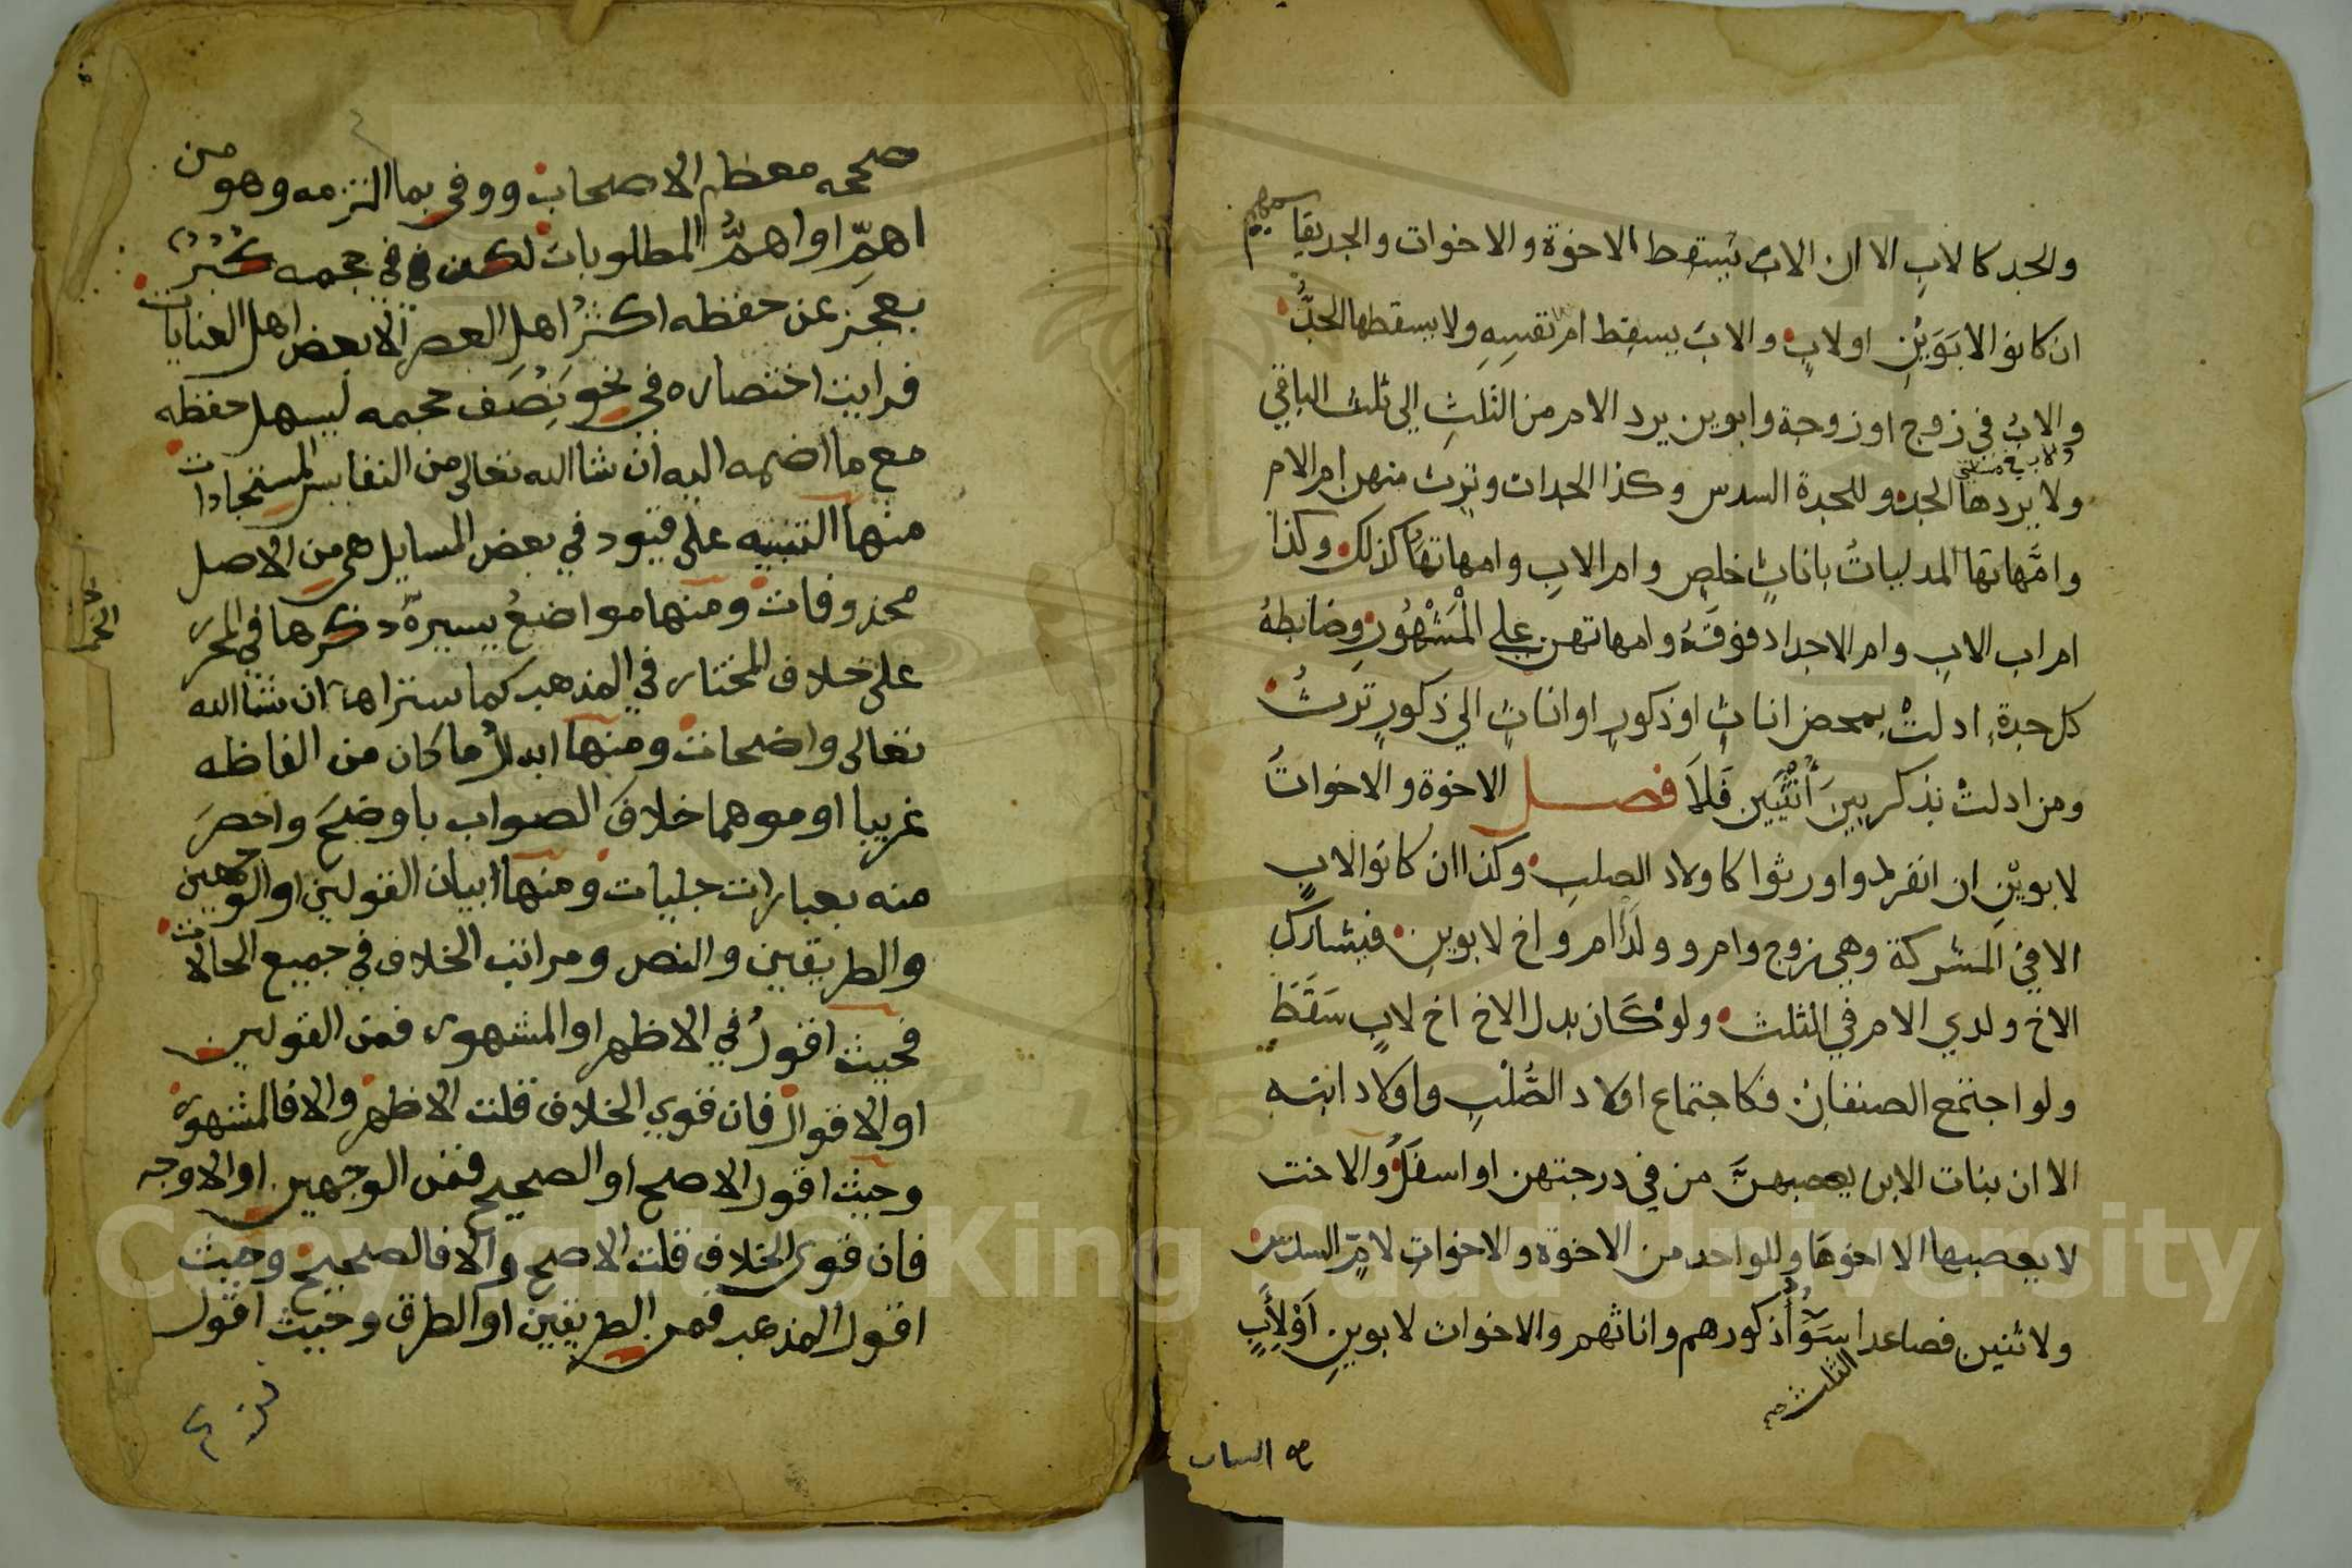 والجد كالاب الا ان الاب يسقط الاخوة والاخوات والجد يقاسمهم
ان كانوا لابوين او لاب والاب يسقط ام نفسه ولا يسقطها الجد
والاب في زوج او زوجة وابوين يرد الام من الثلث الي ثلث الباقي
ولا يردها الجد وللجدة السدس وكذا الجدات وترث منهن ام الام
وامهاتها المدليات باناث خلص وام الاب وامهاتها كذلك وكذا
ام اب الاب وام الاجداد فوقه وامهاتهن علي المشهور وضابطه
كل جدة ادلت بمحض اناث او ذكور او اناث الي ذكور ترث
ومن ادلت بذكر بين انثيين فلا فصل الاخوة والاخوات
لابوين ان انفردوا ورثوا كاولاد الصلب وكذا ان كانوا لاب
الا في المشركة وهي زوج وام وولدا ام واخ لابوين فيشارك
الاخ ولدي الام في الثلث ولو كان بدل الاخ اخ لاب سقط
ولو اجتمع الصنفان فكاجتماع اولاد الصلب واولاد ابنه
الا ان بنات الابن يعصبهن من في درجتهن او اسفل والاخت
لا يعصبها الا اخوها وللواحد من الاخوة والاخوات لام السدس
ولاثنين فصاعدا الثلث سوا ذكورهم واناثهم والاخوات لابوين او لاب
صححه معظم الاصحاب ووفي بما التزمه وهو من
اهم او اهم المطلوبات لكن في حجمه كبر
يعجز عن حفظه اكثر اهل العصر الا بعض اهل العنايات
فرايت اختصاره في نحو نصف حجمه ليسهل حفظه
مع ما اضمه اليه ان شا الله تعالى من النفايس المستجادات
منها التنبيه على قيود في بعض المسايل هي من الاصل
محذوفات ومنها مواضع يسيرة ذكرها في المحرر
على خلاف المختار في المذهب كما ستراها ان شا الله
تعالى واضحات ومنها ابدال ما كان من الفاظه
غريبا او موهما خلاف الصواب باوضح واخصر
منه بعبارات جليات ومنها بيان القولين او الوجهين
والطريقين والنص ومراتب الخلاف في جميع الحالات
فحيث اقول في الاظهر او المشهور فمن القولين
او الاقوال فان قوي الخلاف قلت الاظهر والا فالمشهور
وحيث اقول الاصح او الصحيح فمن الوجهين او الاوجه
فان قوى الخلاف قلت الاصح والا فالصحيح وحيث
اقول المذهب فمن الطريقين او الطرق وحيث اقول